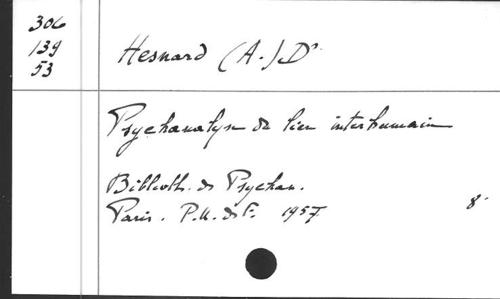 306
139
53
Hesnard (A.) Dr
Psychanalyse du lien interhumain
Biblioth. de Psychan.
Paris. P.U. de F. 1957. 8°